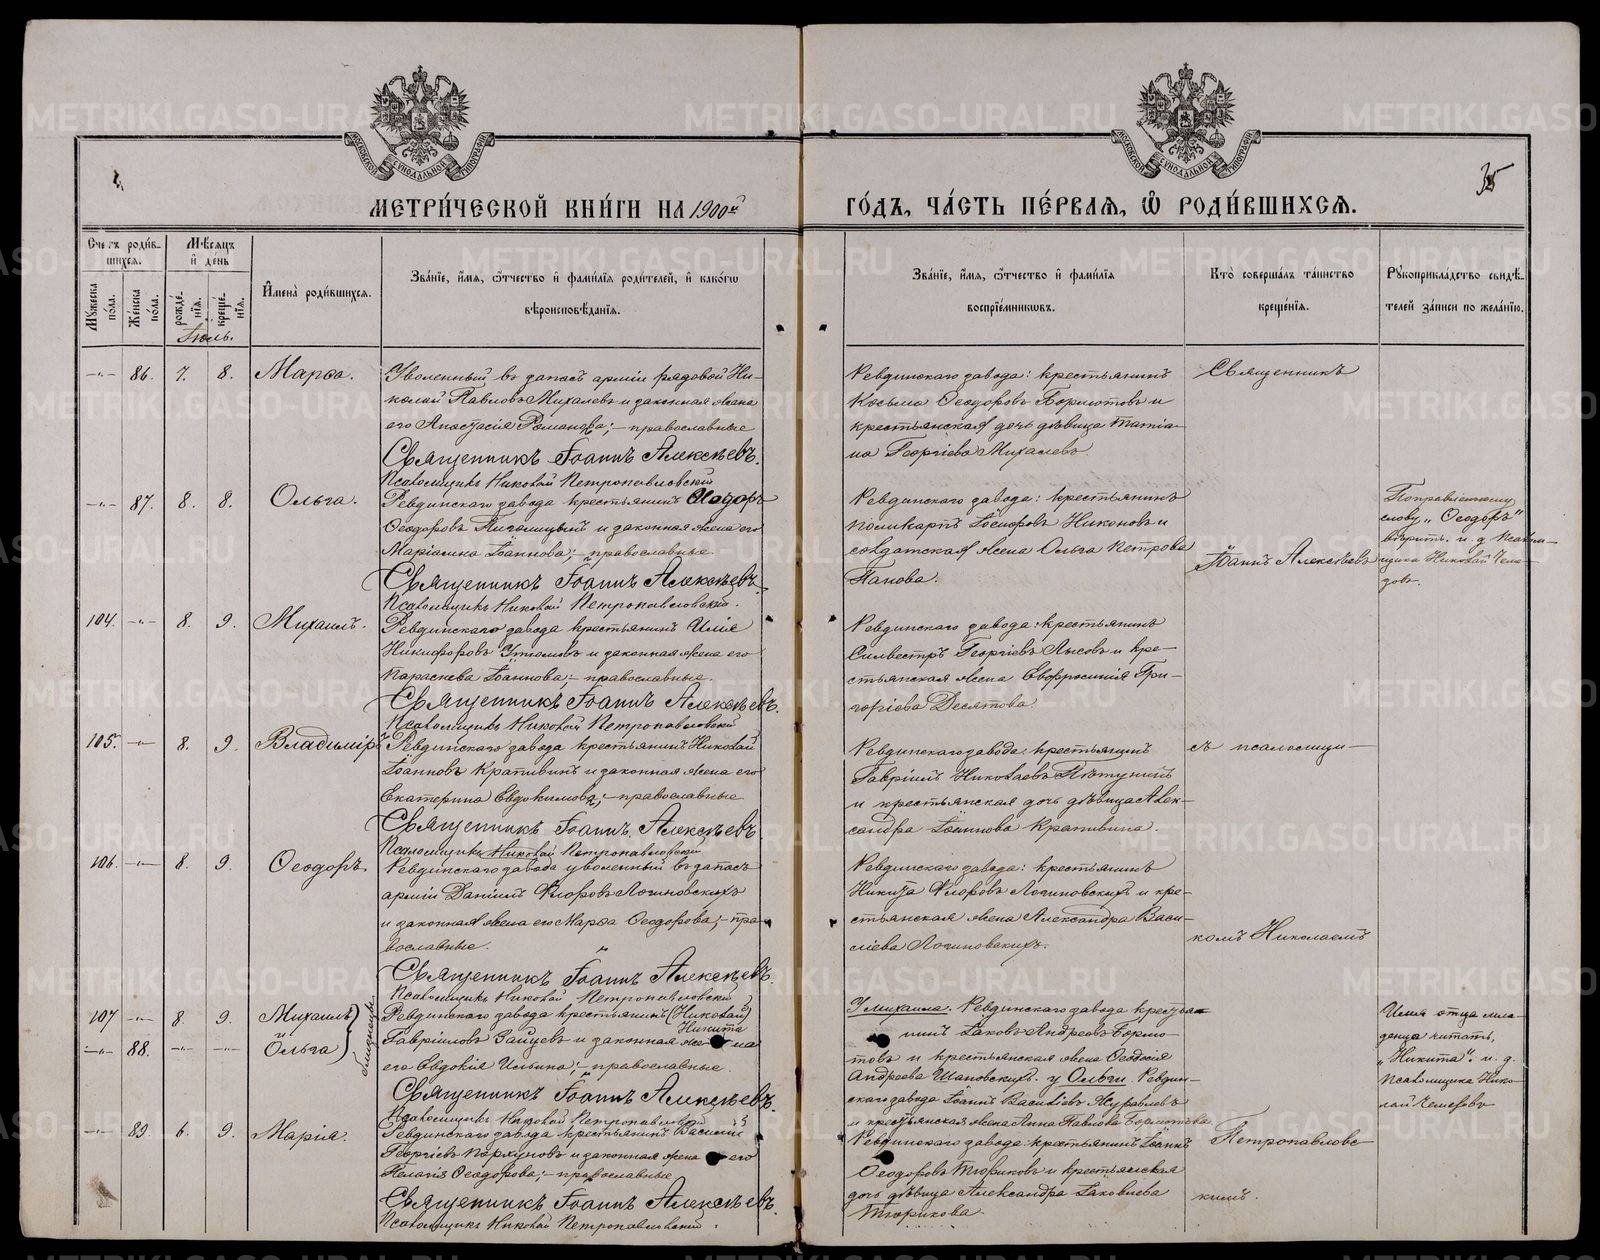 МЕТРИ́ЧЕСКОЙ КНИ́ГИ НА 1900й
ГО́ДЪ, ЧА́СТЬ ПЕ́РВАЯ, Ѡ РОДИ́ВШИХСЯ.
35
Счетъ роди́в-
шихся.
Му́жеска по́ла.
Же́нска по́ла.
Мѣ́сяцъ и де́нь
рожде́-
нія.
креще́-
нія.
Имена̀ роди́вшихся.
Зва́ніе, и́мя, ѻ́тчество и фами́лія роди́телей, и како́гѡ
вѣроисповѣ́данія.
Зва́ніе, и́мя, ѻ́тчество и фами́лія
воспріе́мниковъ.
Кто̀ соверша́лъ та́инство
креще́нія.
Рꙋкоприкла́дство свидѣ́-
телей за́писи по жела́нію.
Іюль.
-"- 86. 7. 8. Марѳа.
Уволенный въ запасъ арміи рядовой Ни-
колай Павловъ Михалевъ и законная жена
его Анастасія Романова; - православные
Священникъ Іоаннъ Алексѣевъ.
Псаломщикъ Николай Петропавловскій
Ревдинскаго завода: крестьянинъ
Косьма Ѳеодоровъ Бормотовъ и
крестьянская дочь дѣвица Татіа-
на Георгіева Михалева.
Священникъ
-"- 87. 8. 8. Ольга.
Ревдинскаго завода крестьянинъ Ѳеодоръ
Ѳеодоровъ и законная жена его
Маріамна Іоаннова; - православные.
Священникъ Іоаннъ Алексѣевъ.
Псаломщикъ Николай Петропавловскій.
Ревдинскаго завода: крестьянинъ
Поликарпъ Іосифовъ Никоновъ и
солдатская жена Ольга Петрова
Панова.
Іоаннъ Алексѣевъ
Поправленному
слову "Ѳеодоръ"
вѣрить. и. д. псалом-
щика Николай Чеме-
зовъ.
104. -"- 8. 9. Михаилъ.
Ревдинскаго завода крестьянинъ Илія
Никифоровъ и законная жена его
Параскева Іоаннова; - православные.
Священникъ Іоаннъ Алексѣевъ.
Псаломщикъ Николай Петропавловскій
Ревдинскаго завода: крестьянинъ
Силвестръ Георгіевъ Лысовъ и кре-
стьянская жена Евфросинія Гри-
горіева Десятова
105. -"- 8. 9. Владиміръ
Ревдинскаго завода крестьянинъ Николай
Іоанновъ Крапивинъ и законная жена его
Екатерина Евдокимова; - православные
Священникъ Іоаннъ Алексѣевъ
Псаломщикъ Николай Петропавловскій
Ревдинскаго завода: крестьянинъ
Гавріилъ Николаевъ Пѣтунинъ
и крестьянская дочь дѣвица Алек-
сандра Іоаннова Крапивина.
съ псаломщи-
106. -"- 8. 9. Ѳеодоръ.
Ревдинскаго завода уволенный въ запасъ
арміи Даніилъ Флоровъ Логиновскихъ
и законная жена его Марѳа Ѳеодорова; - пра-
вославные.
Священникъ Іоаннъ Алексѣевъ.
Псаломщикъ Николай Петропавловскій
Ревдинскаго завода: крестьянинъ
Никита Флоровъ Логиновскихъ и кре-
стьянская жена Александра Васи-
ліева Логиновскихъ.
комъ Николаемъ
107 -"- 8. 9. Михаилъ
-"- 88. -"- -"- Ольга
близнецы.
Ревдинскаго завода крестьянинъ (Николай)
Никита
Гавріиловъ Зайцевъ и законная жена
его Евдокія Ильина; - православные.
Священникъ Іоаннъ Алексѣевъ.
Псаломщикъ Николай Петропавловскій
У Михаила: Ревдинскаго завода крестья-
нинъ Іаковъ Андреевъ Бормо-
товъ и крестьянская жена Ѳеодосія
Андреева Шановскихъ. у Ольги. Ревдин-
скаго завода Іоаннъ Василіевъ Журавлевъ
и крестьянская жена Анна Павлова Бормотова.
Имя отца мла-
денца читать,
"Никита". и. д.
псаломщика Нико-
лай Чемезовъ
-"- 89. 6. 9. Марія.
Ревдинскаго завода крестьянинъ Василій
Георгіевъ Пархуновъ и законная жена его
Пелагія Ѳеодорова; - православные
Священникъ Іоаннъ Алексѣевъ.
Псаломщикъ Николай Петропавловскій.
Ревдинскаго завода: крестьянинъ Іоаннъ
Ѳеодоровъ Тюриковъ и крестьянская
дочь дѣвица Александра Іаковлева
Тюрикова.
Петропавловс-
кимъ.
METRIKI.GASO-URAL.RU